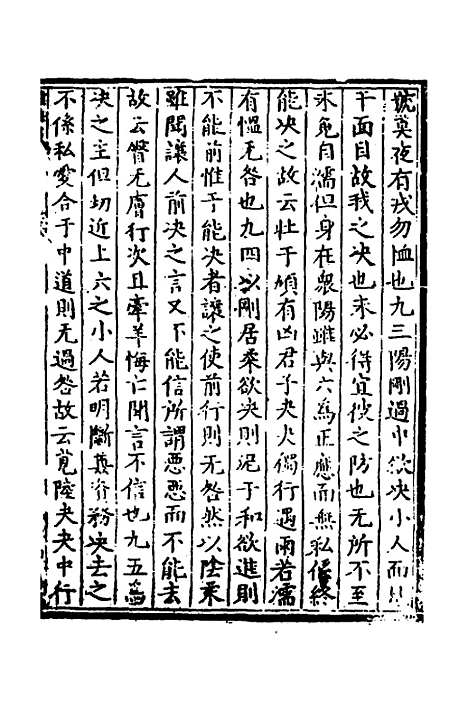 號莫夜有戎勿恤也九三陽剛過中欲決小人而
于面目故我之決也未必得宜彼之防也无所不至
未免自濡但身在衆陽雖與六為正應而無私係終
能决之故云壮于頄有凶君子夬夬獨行遇雨若濡
有愠无咎也九四以剛居柔欲决則泥于和欲進則
不能前惟于能决者讓之使前行則无咎然以陰柔
雖聞讓人前决之言又不能信所謂惡惡而不能去
故云臀无膚行次且牽羊悔亡聞言不信也九五為
决之主但切近上六之小人若明斷資務决去之
不係私愛合于中道則无過咎故云莧陸夬夬中行